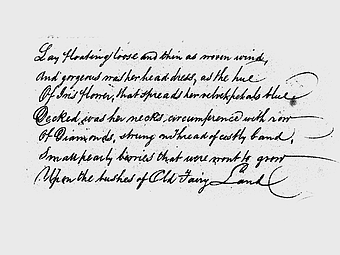 Lay floating loose and thin as woven wind,
And gorgeous was her head dress, as the hue
Of Iris flower, that spreads her velvet petals blue
Decked was her necks circumference with row
Of Diamonds, strung on thread of costly band,
Small pearly berries that were wont to grow
Upon the bushes of Old Fairy Land